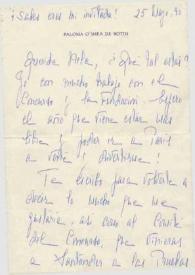 ¡Sabes eres mi invitada! 25 Mayo, 90
PALOMA O'SHEA DE BOTIN
Querida Rita, ¿qué tal estás?
Yo con mucho trabajo con el
Concurso y la Fundación. Espero
el año que viene estar más
libre y poder ir a París
a verte y
Te escribo para volverte a
decir lo mucho que me
gustaría, así como al Comité
del Concurso, que vinieras
a Santander a las Pruebas